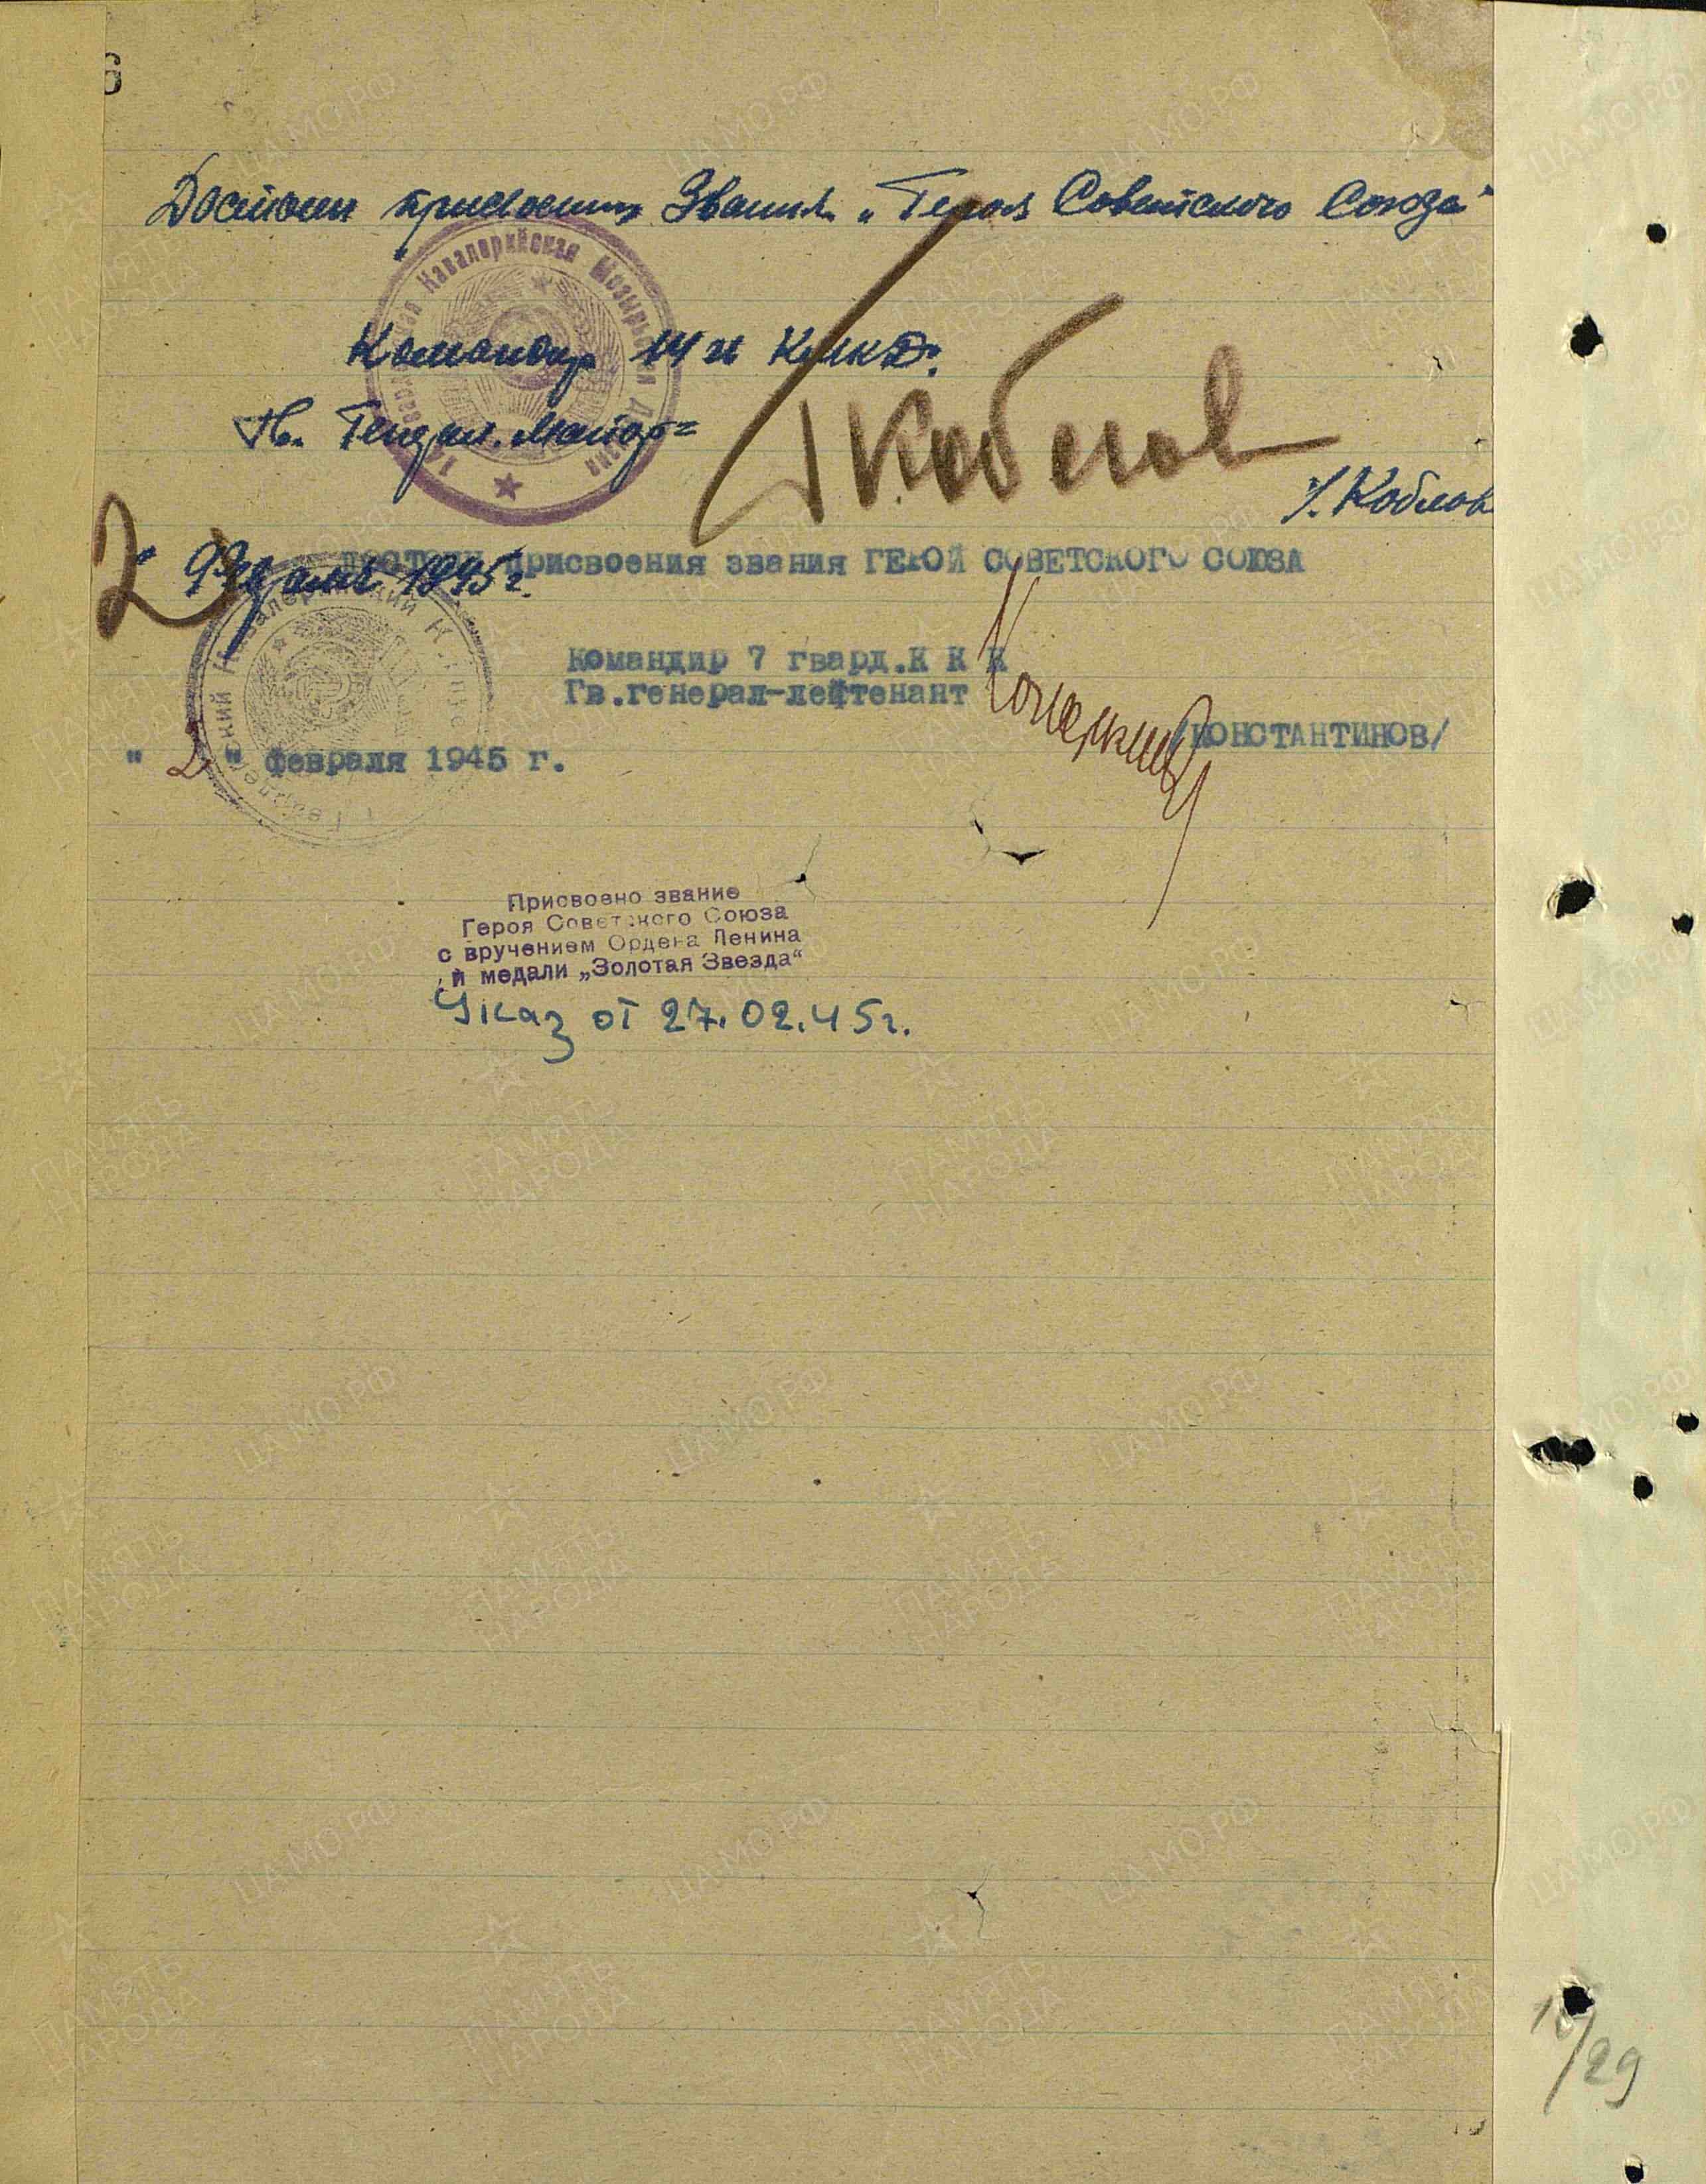 6
Достоин присвоения Звания „Героя Советского Союза"
Командир 14 гв К.М.К.Д.
Гв. Генерал-майор=
Коблов
/. Коблов
2 " Февраля 1945 г.
Достоин присвоения звания ГЕРОЙ СОВЕТСКОГО СОЮЗА
Командир 7 гвард.К К К
Гв.генерал-лейтенант
/КОНСТАНТИНОВ/
" 2 " февраля 1945 г.
Присвоено звание
Героя Советского Союза
с вручением Ордена Ленина
и медали „Золотая Звезда"
Указ от 27.02.45г.
Кавалерийская Мозырьская Дивизия
ПАМЯТЬ НАРОДА
ЦАМО.РФ